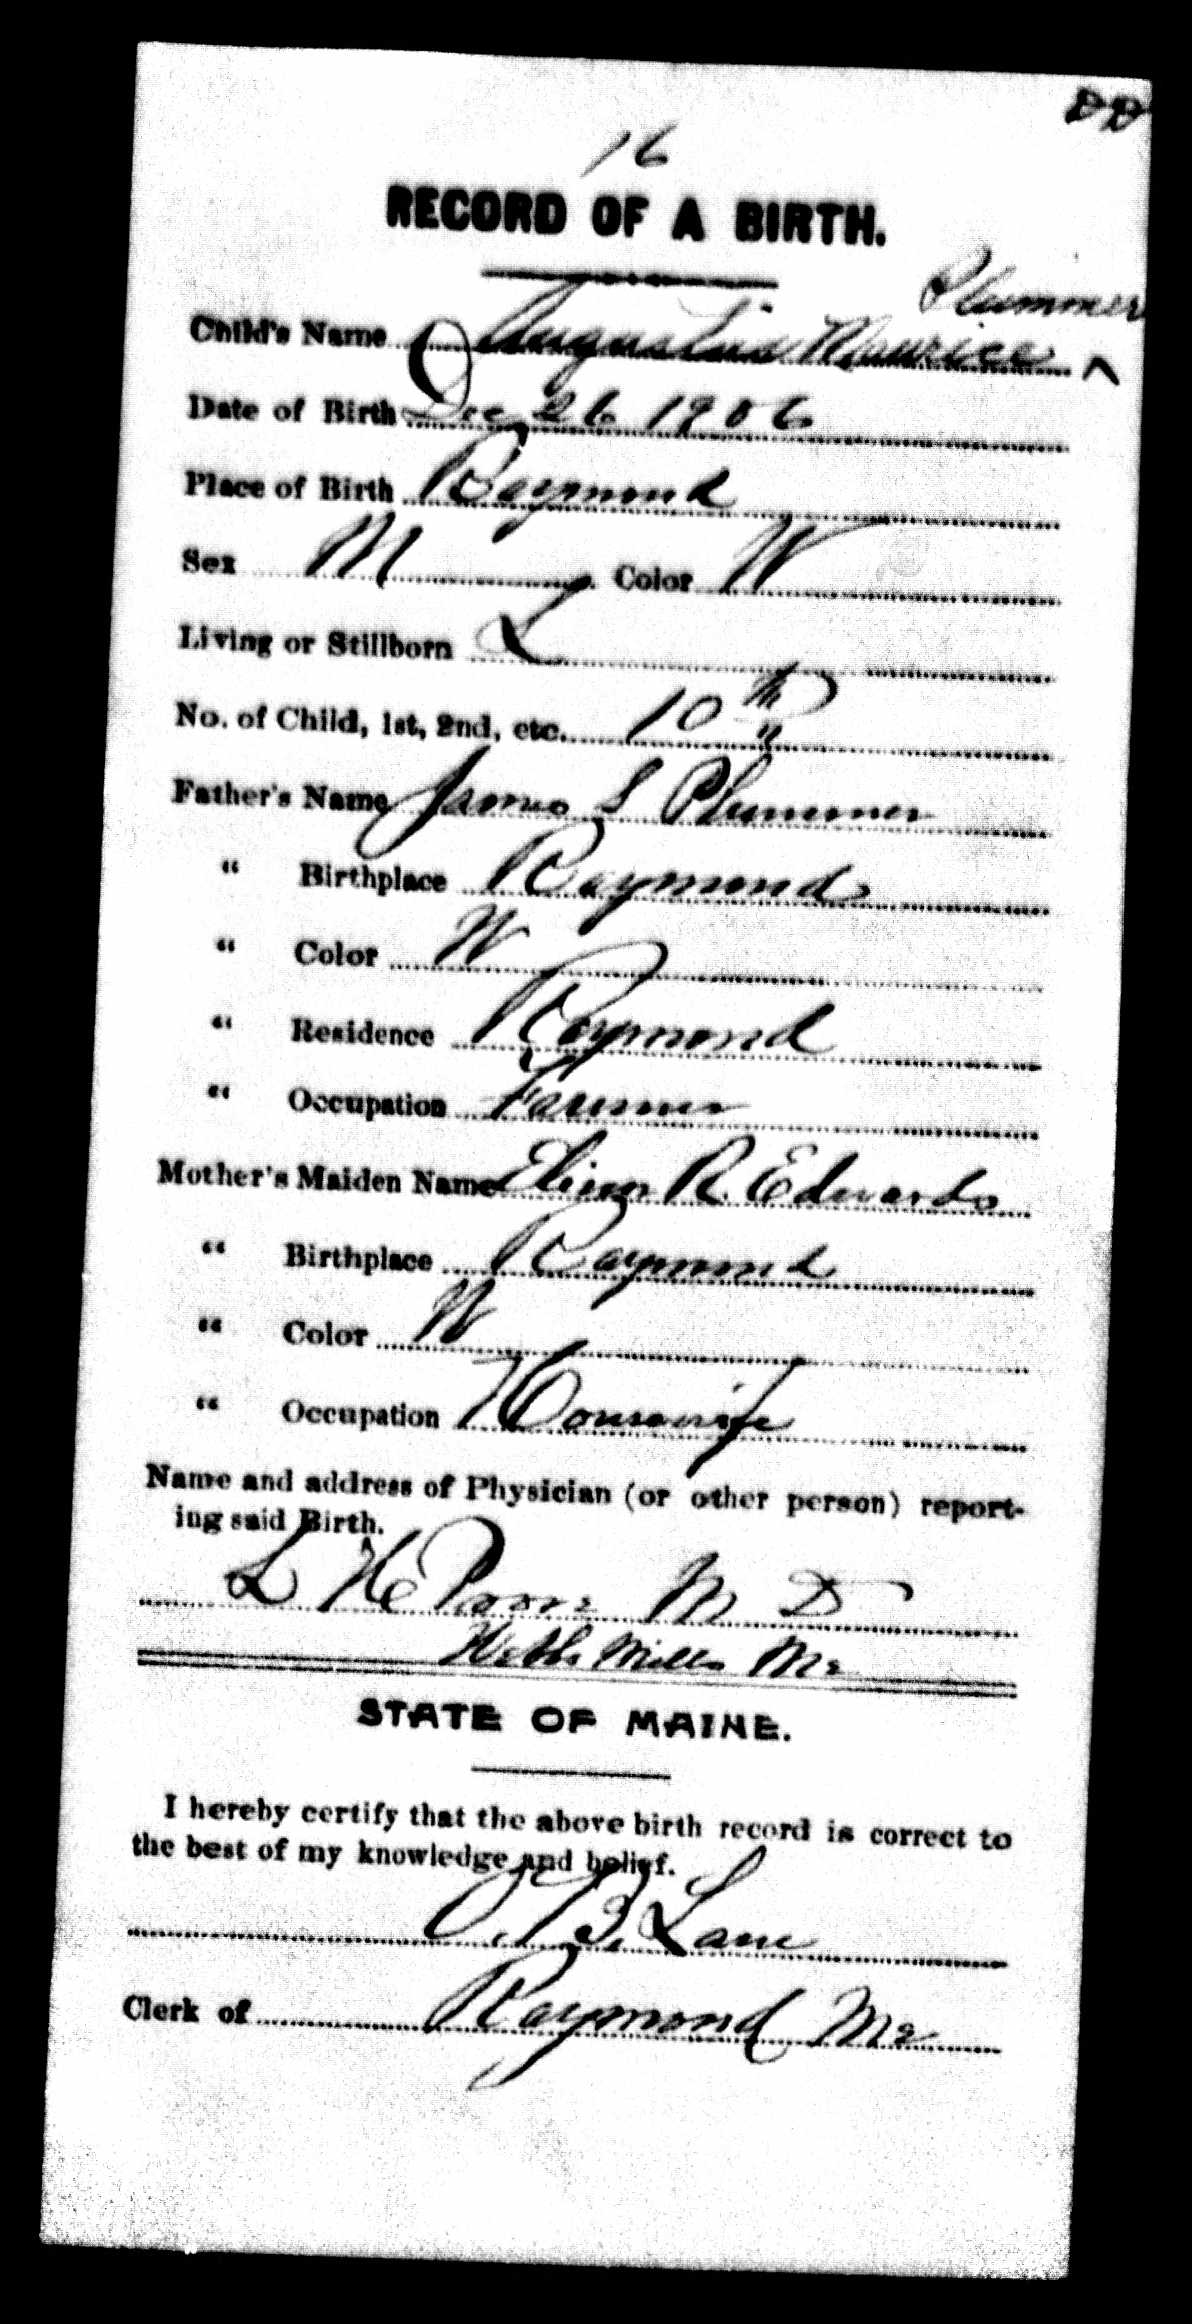 16
RECORD OF A BIRTH.
Plummer
Child's Name Augustus Maurice ^
Date of Birth Dec 26 1906
Place of Birth Raymond
Sex M Color W
Living or Stillborn L
No. of Child, 1st, 2nd, etc. 10th
Father's Name James S Plummer
" Birthplace Raymond
" Color W
" Residence Raymond
" Occupation Farmer
Mother's Maiden Name R. Edwards
" Birthplace Raymond
" Color W
" Occupation Housewife
Name and address of Physician (or other person) report-
ing said Birth.
L H Poore M D
Webbs Mills Me
STATE OF MAINE.
I hereby certify that the above birth record is correct to
the best of my knowledge and belief.
Lane
Clerk of Raymond Me